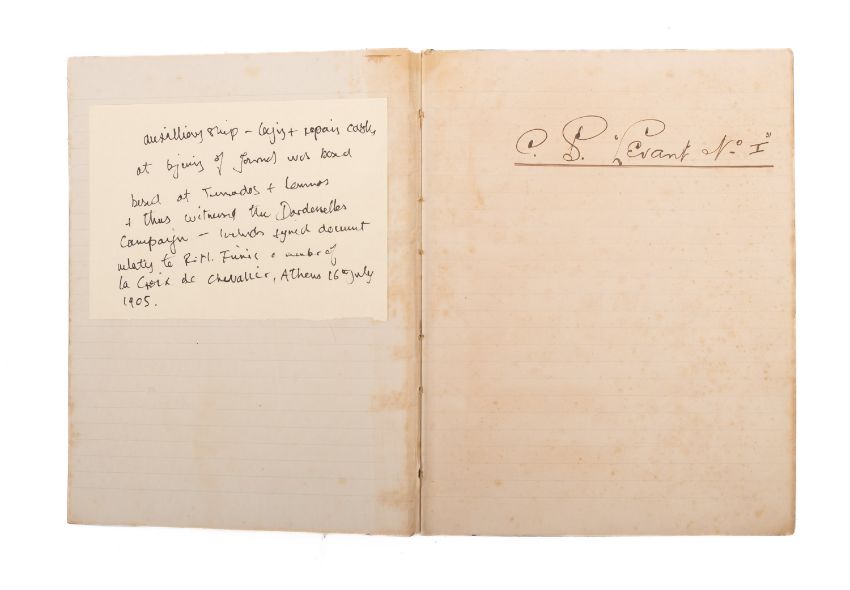 auxilliary ship – lays + repair cables
at of journal was based
based at Tenados + Lemnos
+ thus witnessed the Dardenelles
Campaign – includes signed document
relates to R.H. a member of
la Croix de Chevallier, Athens 16th July
1905.
C. S. Levant No I"